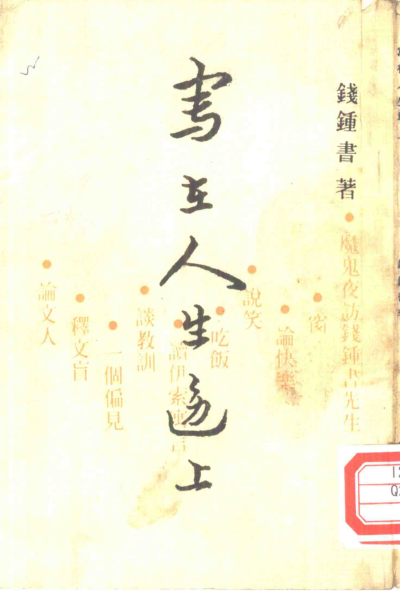 錢鍾書著
寫在人生邊上
魔鬼夜訪錢鍾書先生
窗
論快樂
說笑
吃飯
讀伊索寓言
談教訓
一個偏見
釋文盲
論文人